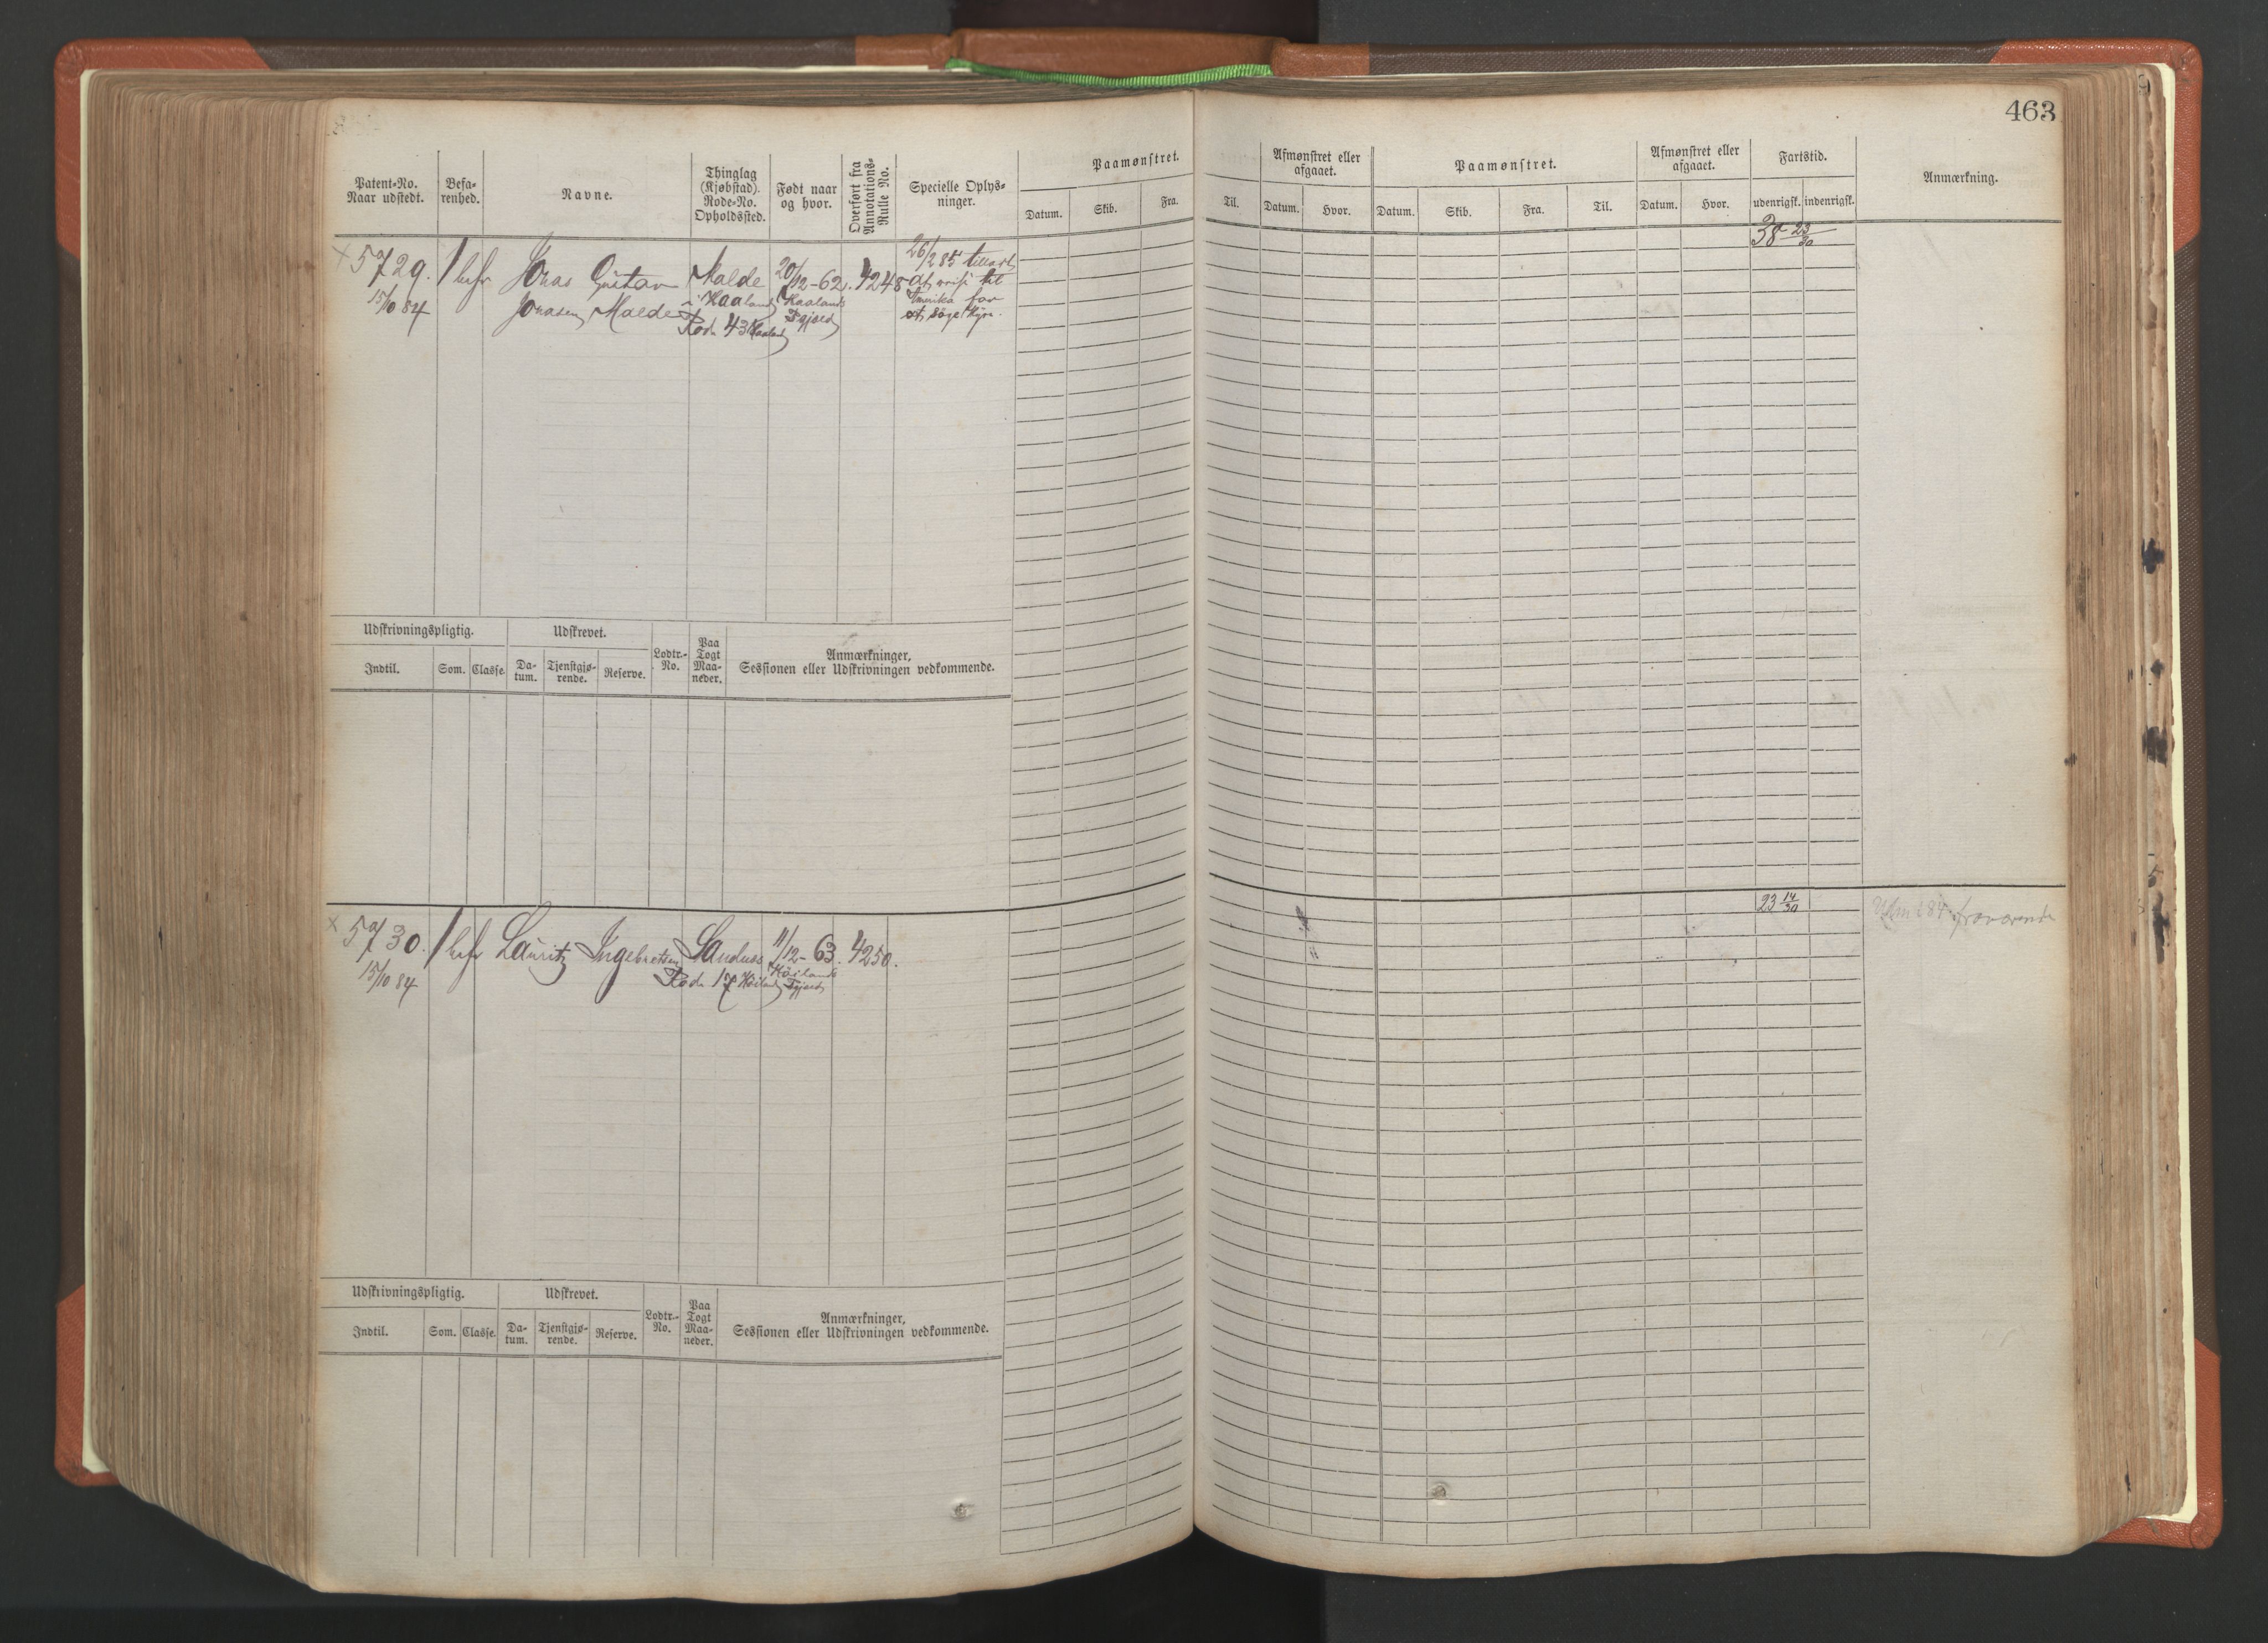 463
Patent-No. Naar udstedt.
Befarenhed.
Navne.
Thinglag (Kjøbstad). Rode-No. Opholdssted.
Født naar og hvor.
Overført fra Annotations-Rulle No.
Specielle Oplysninger.
Paamønstret.
Datum. Skib. Fra. Til.
Afmønstret eller afgaaet.
Datum. Hvor.
Paamønstret.
Datum. Skib. Fra. Til.
Afmønstret eller afgaaet.
Datum. Hvor.
Fartstid.
udenrigsk. indenrigsk.
Anmærkning.
5729. 1 befr Jonas Gustav Malde 20/12-62. 4248
15/10 84 Jonasen Malde i Haaland Haalands Pgjeld
Rode 43 Haaland
26/2 85 tilladt
at reise til
Amerika for
at søge Hyre.
38 23/30
Udskrivningspligtig.
Indtil. Som. Classe.
Udskrevet.
Datum. Tjenstgjørende. Reserve.
Lodtr.-No.
Paa Togt Maaneder.
Anmærkninger,
Sessionen eller Udskrivningen vedkommende.
5730. 1 befr Lauritz Ingebretsen Sandnes 11/12-63. 4250.
15/10 84 Rode 17 Höiland Höilands Pgjeld
23 14/30
84 fraværende
Udskrivningspligtig.
Indtil. Som. Classe.
Udskrevet.
Datum. Tjenstgjørende. Reserve.
Lodtr.-No.
Paa Togt Maaneder.
Anmærkninger,
Sessionen eller Udskrivningen vedkommende.